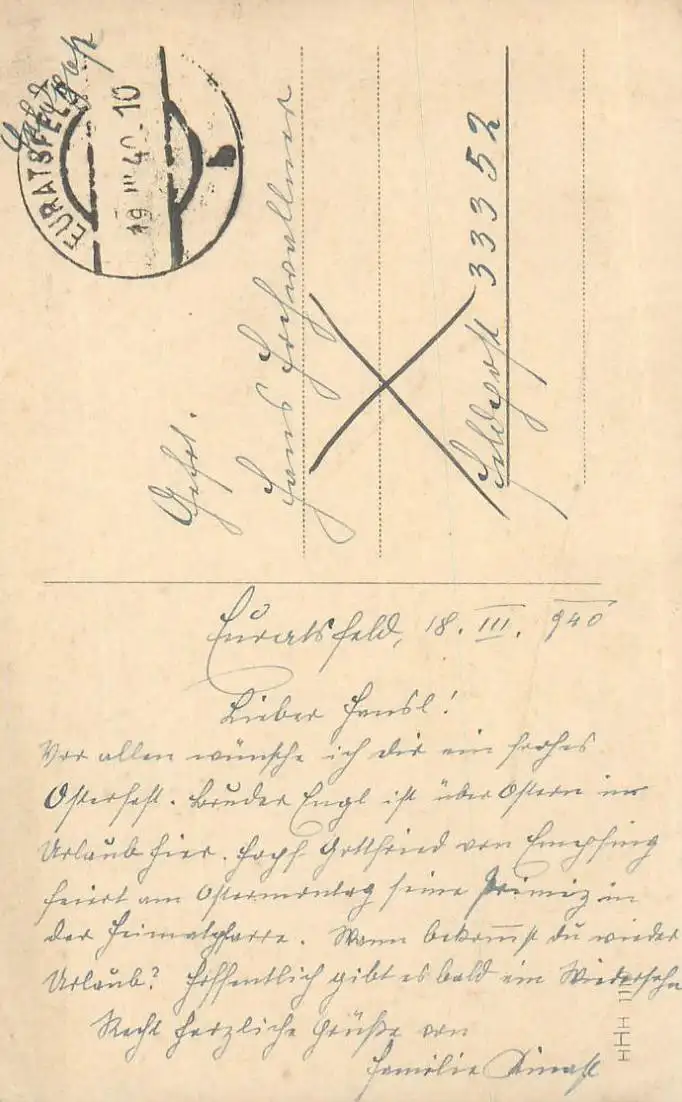 Feldpost
EURATSFELD
19.III.40.10
b
Gefr.
Hans Hochwallner
Feldpost 33352
Euratsfeld, 18. III. 940
Lieber Hansl!
Vor allen wünsche ich dir ein frohes
Osterfest. Bruder Engl ist über Ostern im
Urlaub hier. Gottfried von
feiert am Ostermontag seine Primiz in
der Heimatpfarre. Wann bekommst du wieder
Urlaub? Hoffentlich gibt es bald ein Wiedersehn
Recht herzliche Grüße von
Familie